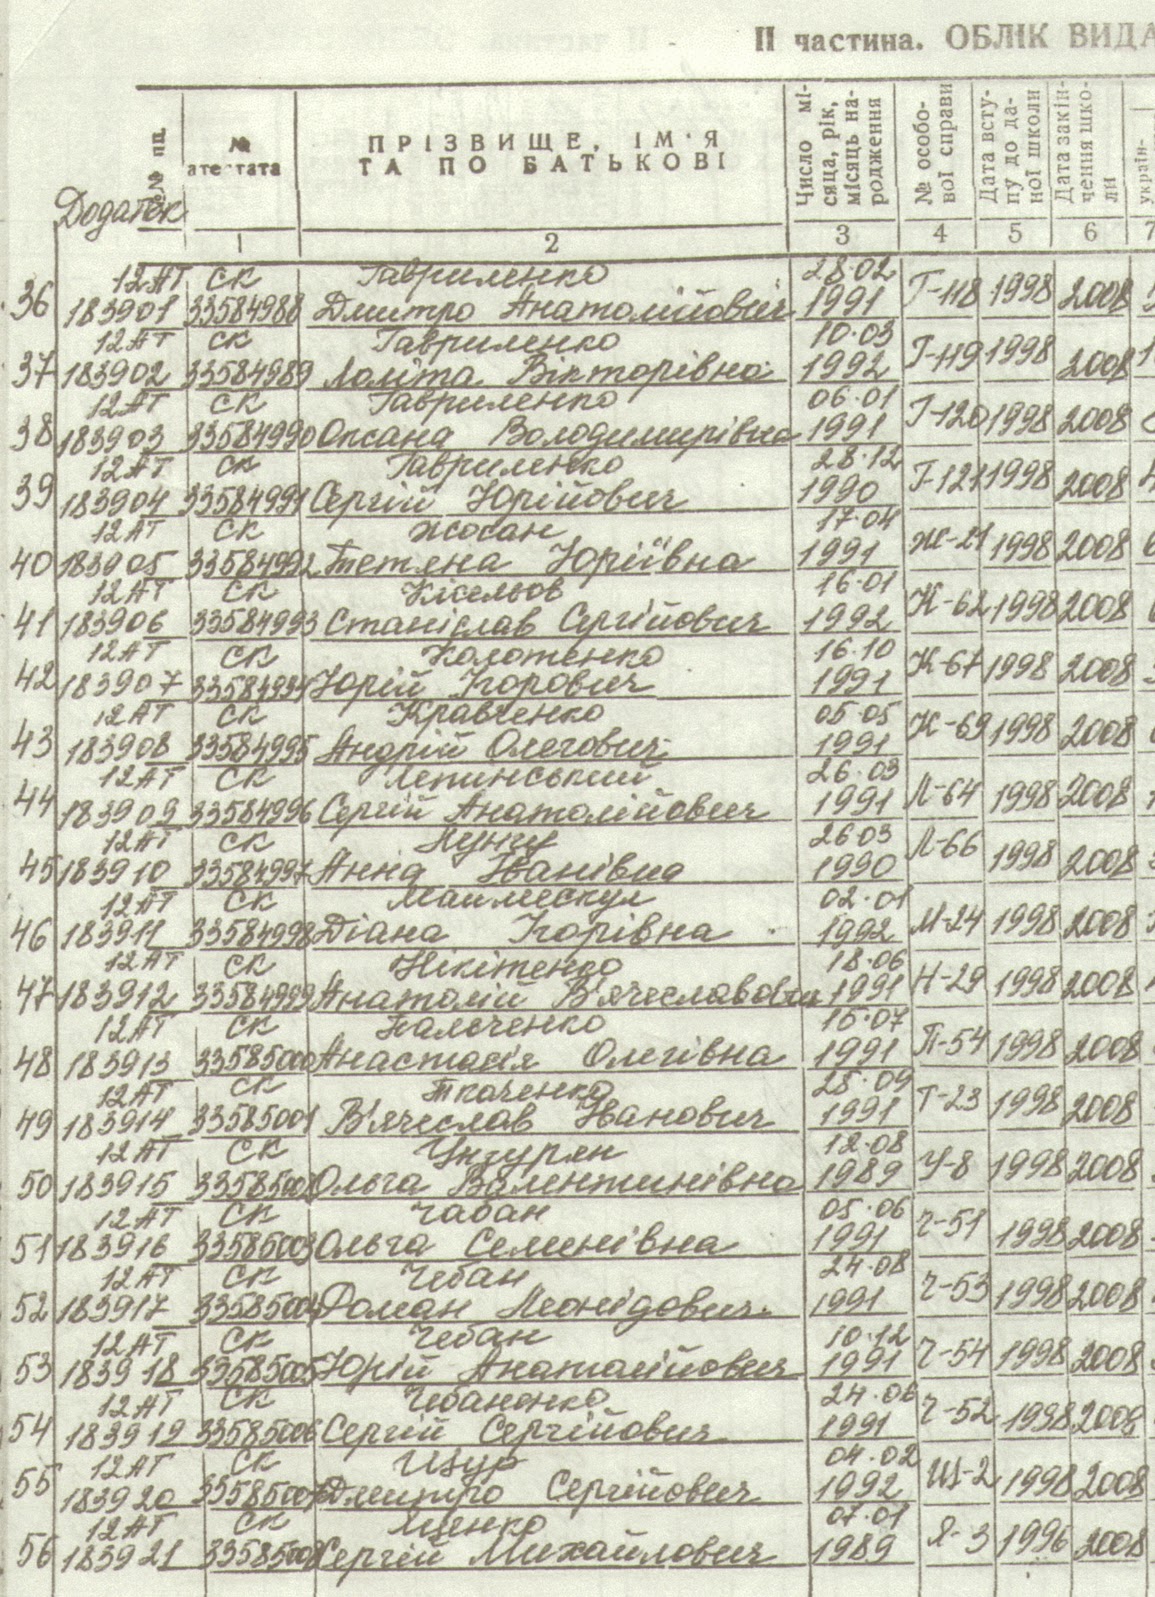 II частина. ОБЛІК ВИДА
№ пп.
№ атестата
ПРІЗВИЩЕ, ІМ'Я ТА ПО БАТЬКОВІ
Число мі-
сяца, рік,
місяць на-
родження
№ особо-
вої справи
Дата всту-
пу до да-
ної школи
Дата закін-
чення шко-
ли
україн-
Додаток
1 2 3 4 5 6 7
12АТ СК Гавриленко 28.02
36 183901 33584988 Дмитро Анатолійович 1991 Г-118 1998 2008
12АТ СК Гавриленко 10.03
37 183902 33584989 Лоліта Вікторівна 1992 Г-119 1998 2008
12АТ СК Гавриленко 06.01
38 183903 33584990 Оксана Володимирівна 1991 Г-120 1998 2008
12АТ СК Гавриленко 28.12
39 183904 33584991 Сергій Юрійович 1990 Г-121 1998 2008
12АТ СК Жосан 17.04
40 183905 33584992 Тетяна Юріївна 1991 Ж-21 1998 2008
12АТ СК Кісельов 16.01
41 183906 33584993 Станіслав Сергійович 1992 К-62 1998 2008
12АТ СК Колотенко 16.10
42 183907 33584994 Юрій Ігорович 1991 К-67 1998 2008
12АТ СК Кравченко 05.05
43 183908 33584995 Андрій Олегович 1991 К-69 1998 2008
12АТ СК Лепинський 26.03
44 183909 33584996 Сергій Анатолійович 1991 Л-64 1998 2008
12АТ СК Лунгу 26.03
45 183910 33584997 Анна Іванівна 1990 Л-66 1998 2008
12АТ СК Маймескул 02.01
46 183911 33584998 Діана Ігорівна 1992 М-24 1998 2008
12АТ СК Нікітенко 18.06
47 183912 33584999 Анатолій В'ячеславович 1991 Н-29 1998 2008
12АТ СК Пальченко 15.07
48 183913 33585000 Анастасія Олегівна 1991 П-54 1998 2008
12АТ СК Ткаченко 25.09
49 183914 33585001 В'ячеслав Іванович 1991 Т-23 1998 2008
12АТ СК Унгурян 12.08
50 183915 33585002 Ольга Валентинівна 1989 У-8 1998 2008
12АТ СК Чабан 05.06
51 183916 33585003 Ольга Семенівна 1991 Ч-51 1998 2008
12АТ СК Чебан 24.08
52 183917 33585004 Роман Леонідович 1991 Ч-53 1998 2008
12АТ СК Чебан 10.12
53 183918 33585005 Юрій Анатолійович 1991 Ч-54 1998 2008
12АТ СК Чебаненко 24.06
54 183919 33585006 Сергій Сергійович 1991 Ч-52 1998 2008
12АТ СК Щур 04.02
55 183920 33585007 Дмитро Сергійович 1992 Щ-2 1998 2008
12АТ СК 07.01
56 183921 33585008 Сергій Михайлович 1989 Я-3 1996 2008